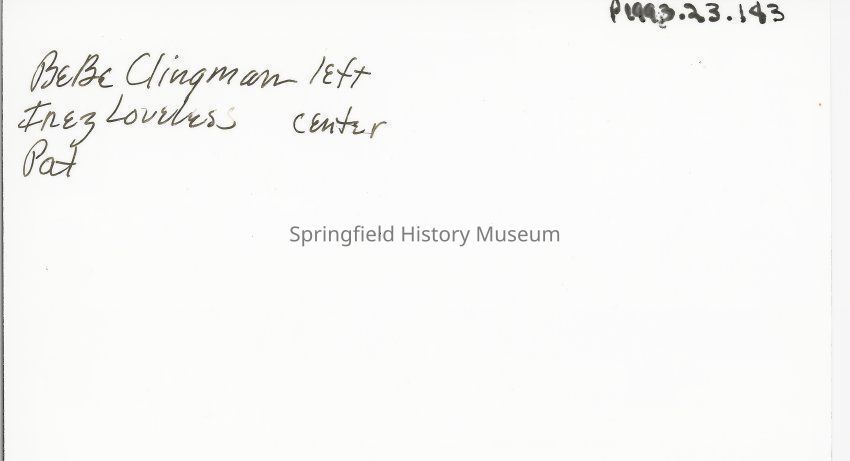 P1993.23.143
BeBe Clingman left
Inez Loveless center
Pat
Springfield History Museum